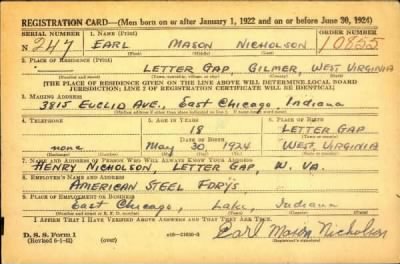 REGISTRATION CARD—(Men born on or after January 1, 1922 and on or before June 30, 1924)
SERIAL NUMBER 1. NAME (Print) ORDER NUMBER
N 247 EARL MASON NICHOLSON 10855
(First) (Middle) (Last)
2. PLACE OF RESIDENCE (Print)
LETTER GAP, GILMER, WEST VIRGINIA
(Number and street) (Town, township, village, or city) (County) (State)
[THE PLACE OF RESIDENCE GIVEN ON THE LINE ABOVE WILL DETERMINE LOCAL BOARD
JURISDICTION; LINE 2 OF REGISTRATION CERTIFICATE WILL BE IDENTICAL]
3. MAILING ADDRESS
3815 EUCLID AVE., East Chicago, Indiana
[Mailing address if other than place indicated on line 2. If same insert word same]
4. TELEPHONE 5. AGE IN YEARS 6. PLACE OF BIRTH
18 LETTER GAP
DATE OF BIRTH
none May 30 1924 WEST VIRGINIA
7. NAME AND ADDRESS OF PERSON WHO WILL ALWAYS KNOW YOUR ADDRESS
HENRY NICHOLSON, LETTER GAP, W. VA.
8. EMPLOYER'S NAME AND ADDRESS
AMERICAN STEEL FDRYS
9. PLACE OF EMPLOYMENT OR BUSINESS
East Chicago, Lake, Indiana
(Number and street or R. F. D. number) (Town) (County) (State)
I AFFIRM THAT I HAVE VERIFIED ABOVE ANSWERS AND THAT THEY ARE TRUE.
D. S. S. Form 1
(Revised 6-1-42) (over) Earl Mason Nicholson